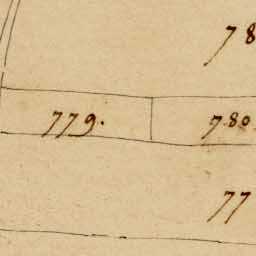 78
779.
780
77